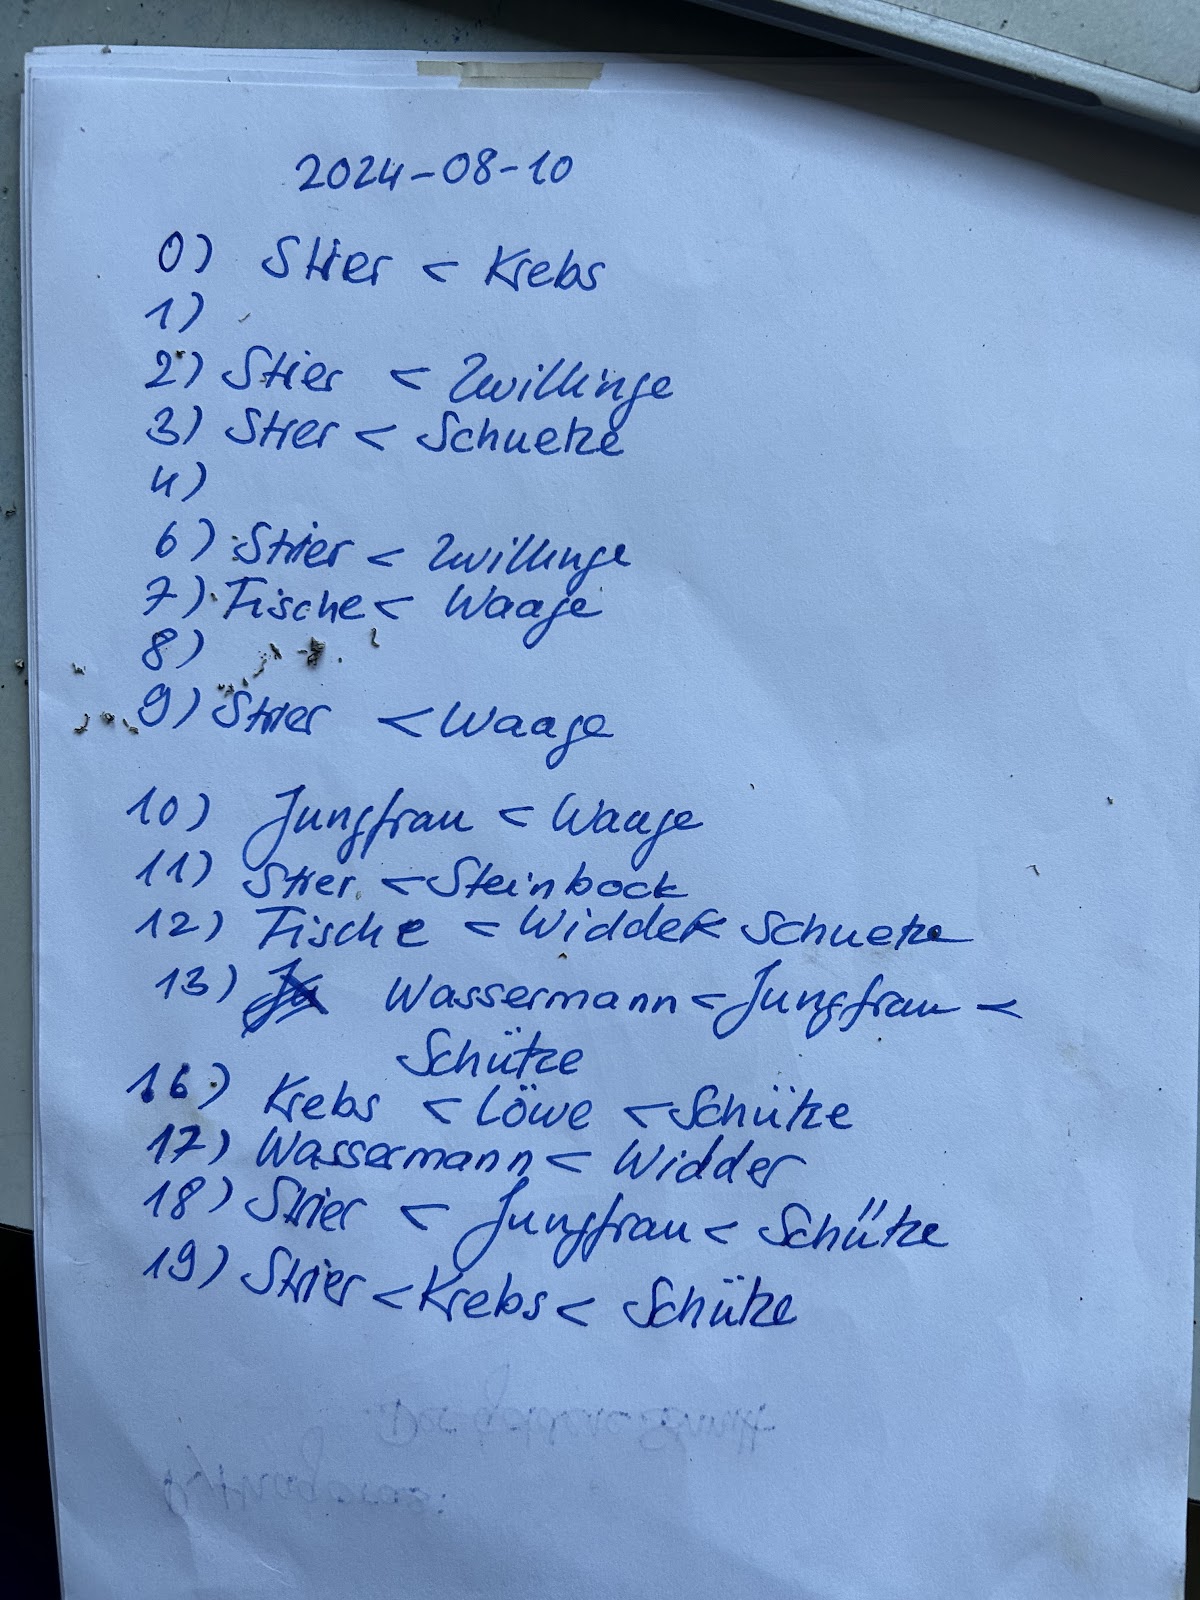 2024-08-10
0) Stier < Krebs
1)
2) Stier < Zwillinge
3) Stier < Schuetze
4)
6) Stier < Zwillinge
7) Fische < Waage
8)
9) Stier < Waage
10) Jungfrau < Waage
11) Stier < Steinbock
12) Fische < Widder < Schuetze
13) Wassermann < Jungfrau <
Schütze
16) Krebs < Löwe < Schütze
17) Wassermann < Widder
18) Stier < Jungfrau < Schütze
19) Stier < Krebs < Schütze